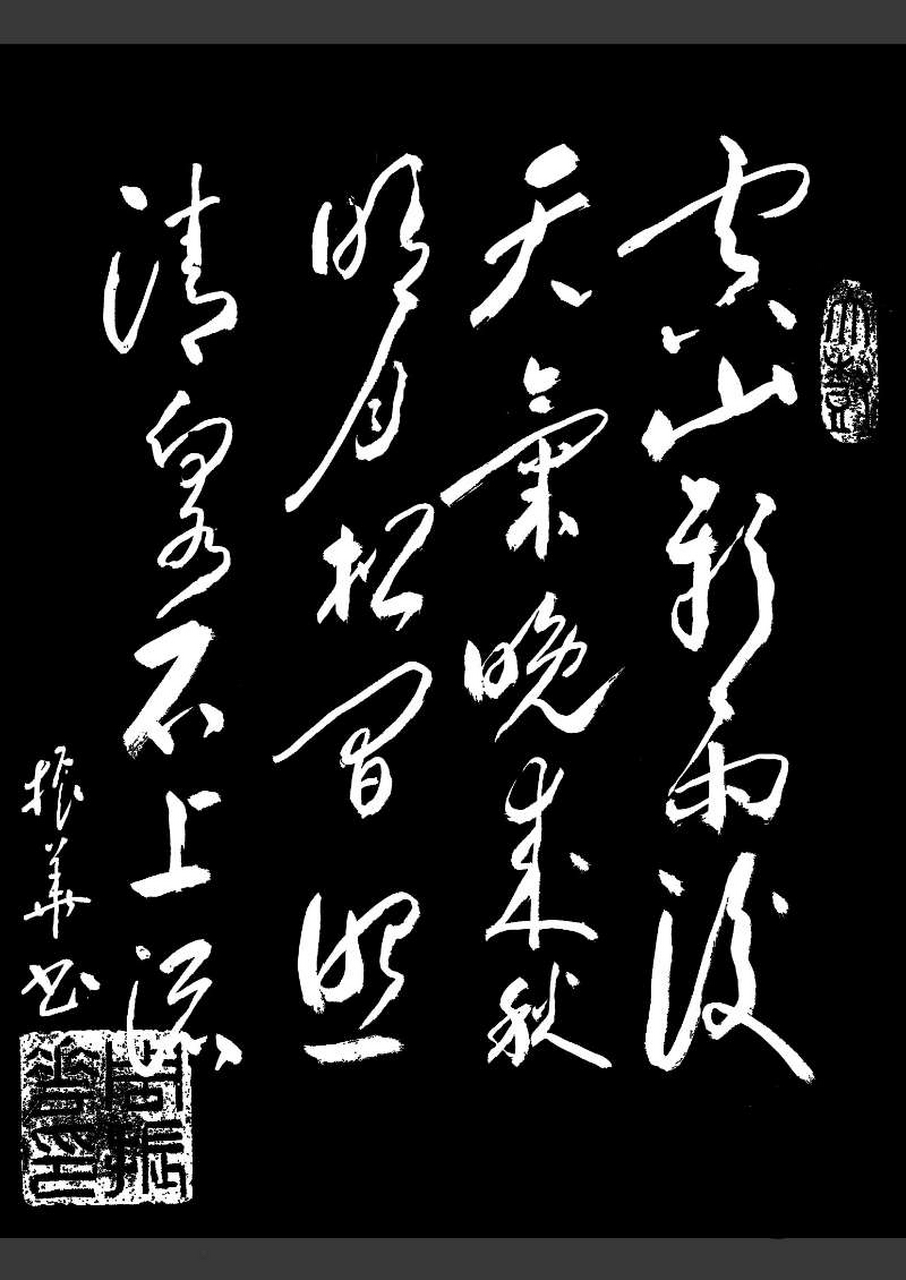 空山新雨後
天氣晚來秋
明月松間照
清泉石上流
振華书
周振華印